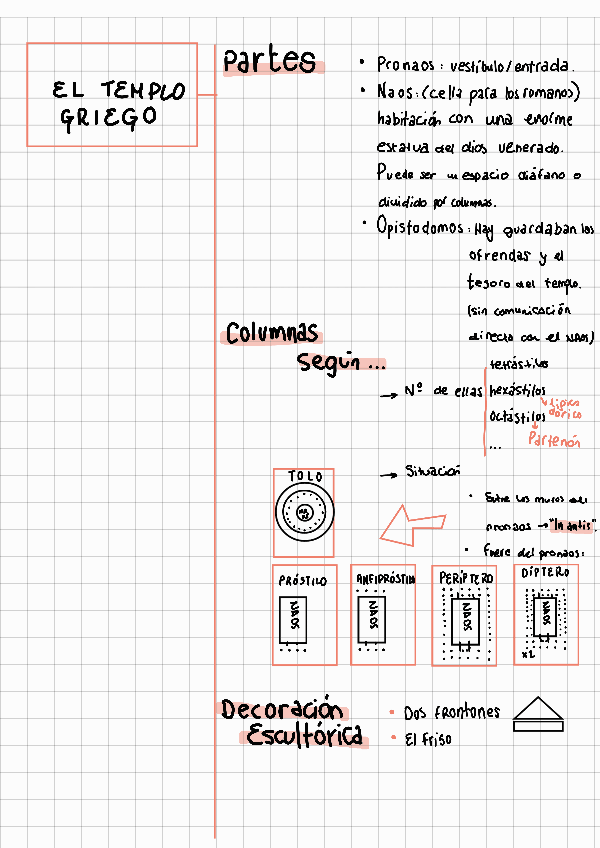 EL TEMPLO
GRIEGO
Partes
• Pronaos: vestíbulo/entrada.
• Naos: (cella para los romanos)
habitación con una enorme
estatua del dios venerado.
Puede ser un espacio diáfano o
dividido por columnas.
• Opistodomos: Hay guardaban los
ofrendas y el
tesoro del templo.
(sin comunicación
directa con el naos)
Columnas
según...
→ Nº de ellas
tetrástilos
hexástilos
↘ típico
dórico
octástilos
↓
Partenón
...
→ Situación
• Entre los muros del
pronaos → "In antis".
• Fuera del pronaos:
TOLO
NAOS
PRÓSTILO
NAOS
ANFIPRÓSTILO
NAOS
PERÍPTERO
NAOS
DÍPTERO
NAOS
x2
Decoración
Escultórica
• Dos frontones
• El friso